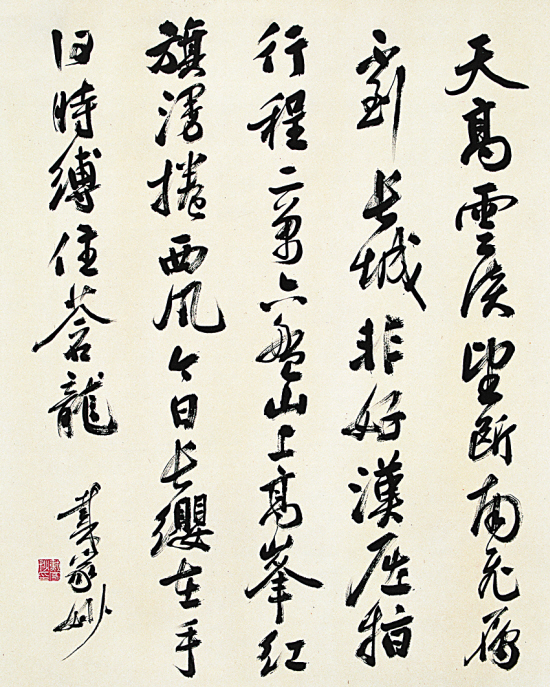 天高雲淡望断南飛雁
不到長城非好漢屈指
行程二萬六盤山上高峯紅
旗漫捲西風今日長纓在手
何時縛住蒼龍
戴家妙